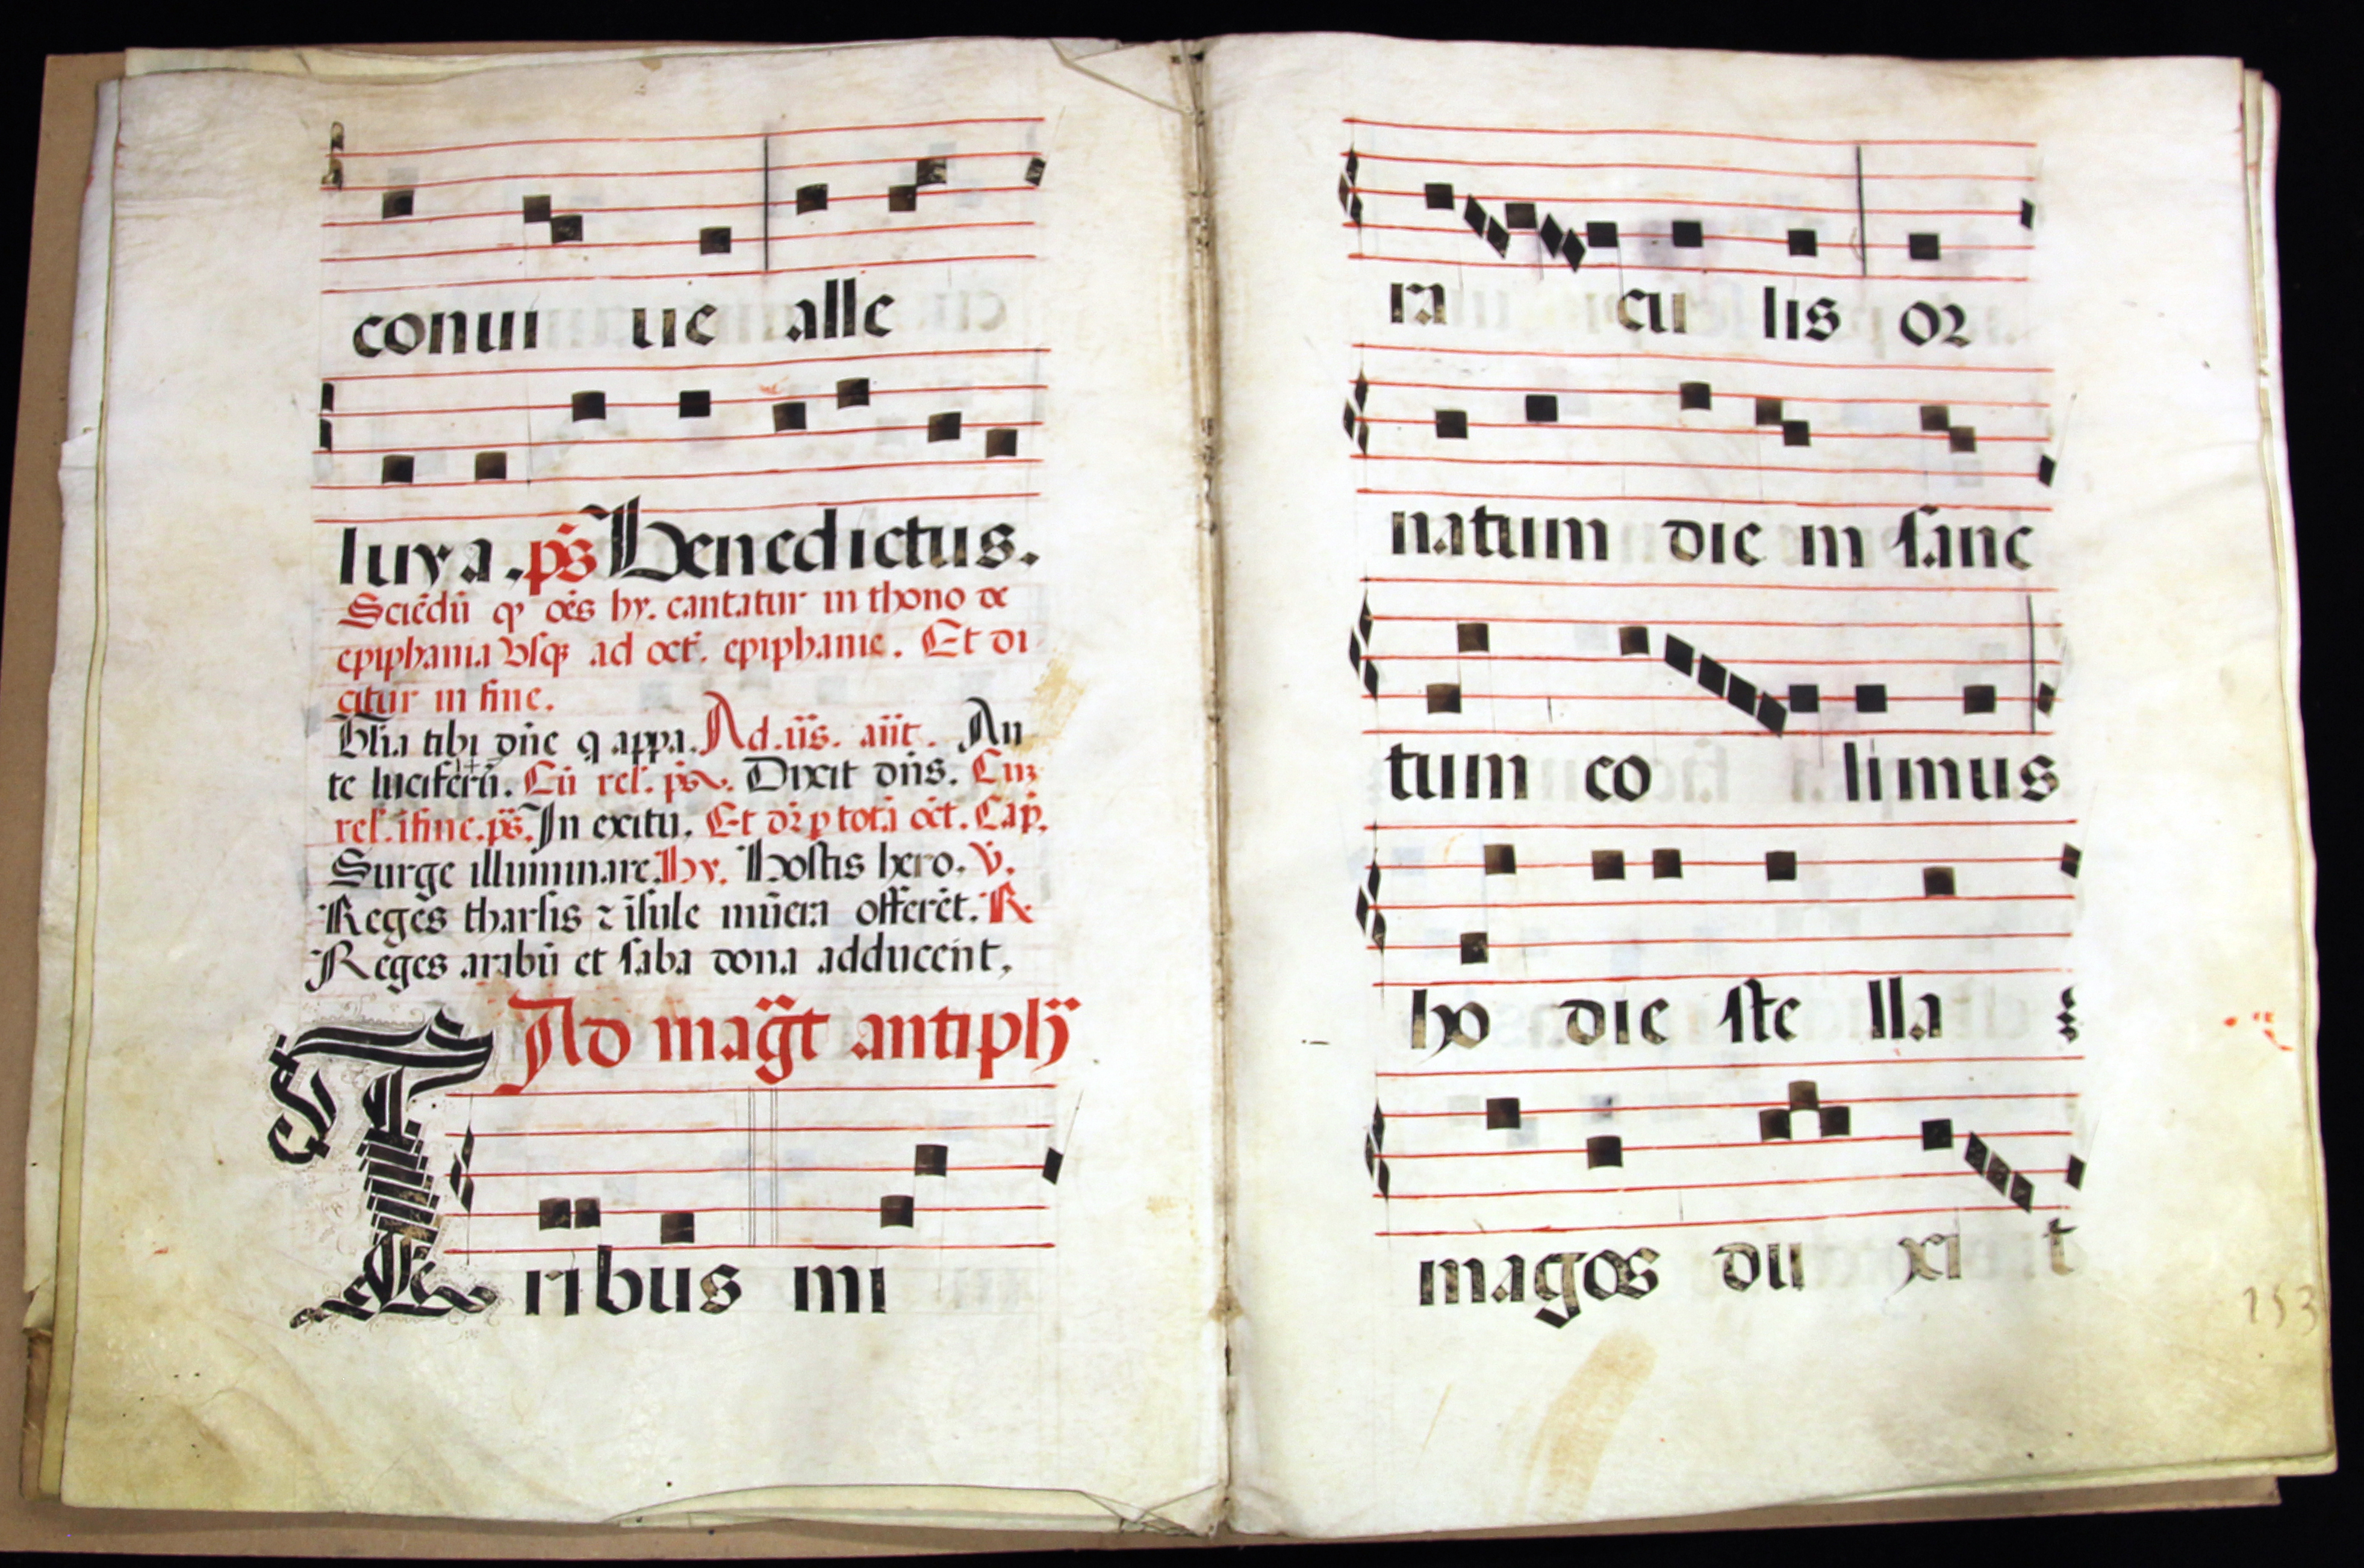 conui ue alle
luya. ps̄ Benedictus.
Sciēdū ꝙ oēs hy. cantatur in thono de
epiphania vsqꝫ ad oct̄. epiphanie. Et di
citur in fine.
Glīa tibi dn̄e q appa. Ad .ii᷒s. an̄t. An
te luciferū. Cū rel'. ps̄. Dixit dn̄s. Cuꝫ
rel'. ī fine. ps̄. In exitu. Et dr̄ p totā oct̄. Cap̄.
Surge illuminare. hy. Hostis hero. V̄.
Reges tharsis ⁊ īsule mūera offerēt. R.
Reges arabū et saba dona adducent.
Ad mag̅t antiph̄
Tribus mi
ra cu lis or
natum die m sanc
tum co limus
ho die ste lla
magos du xi t
153